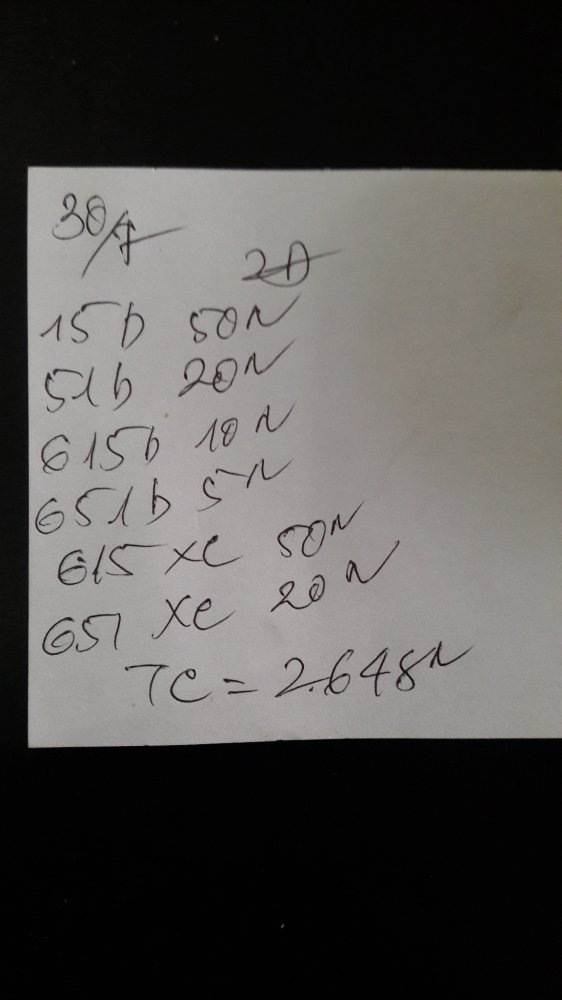 30/7
2Đ
15b 50N
51b 20N
615b 10N
651b 5N
615 XC 50N
651 XC 20N
TC = 2.648N